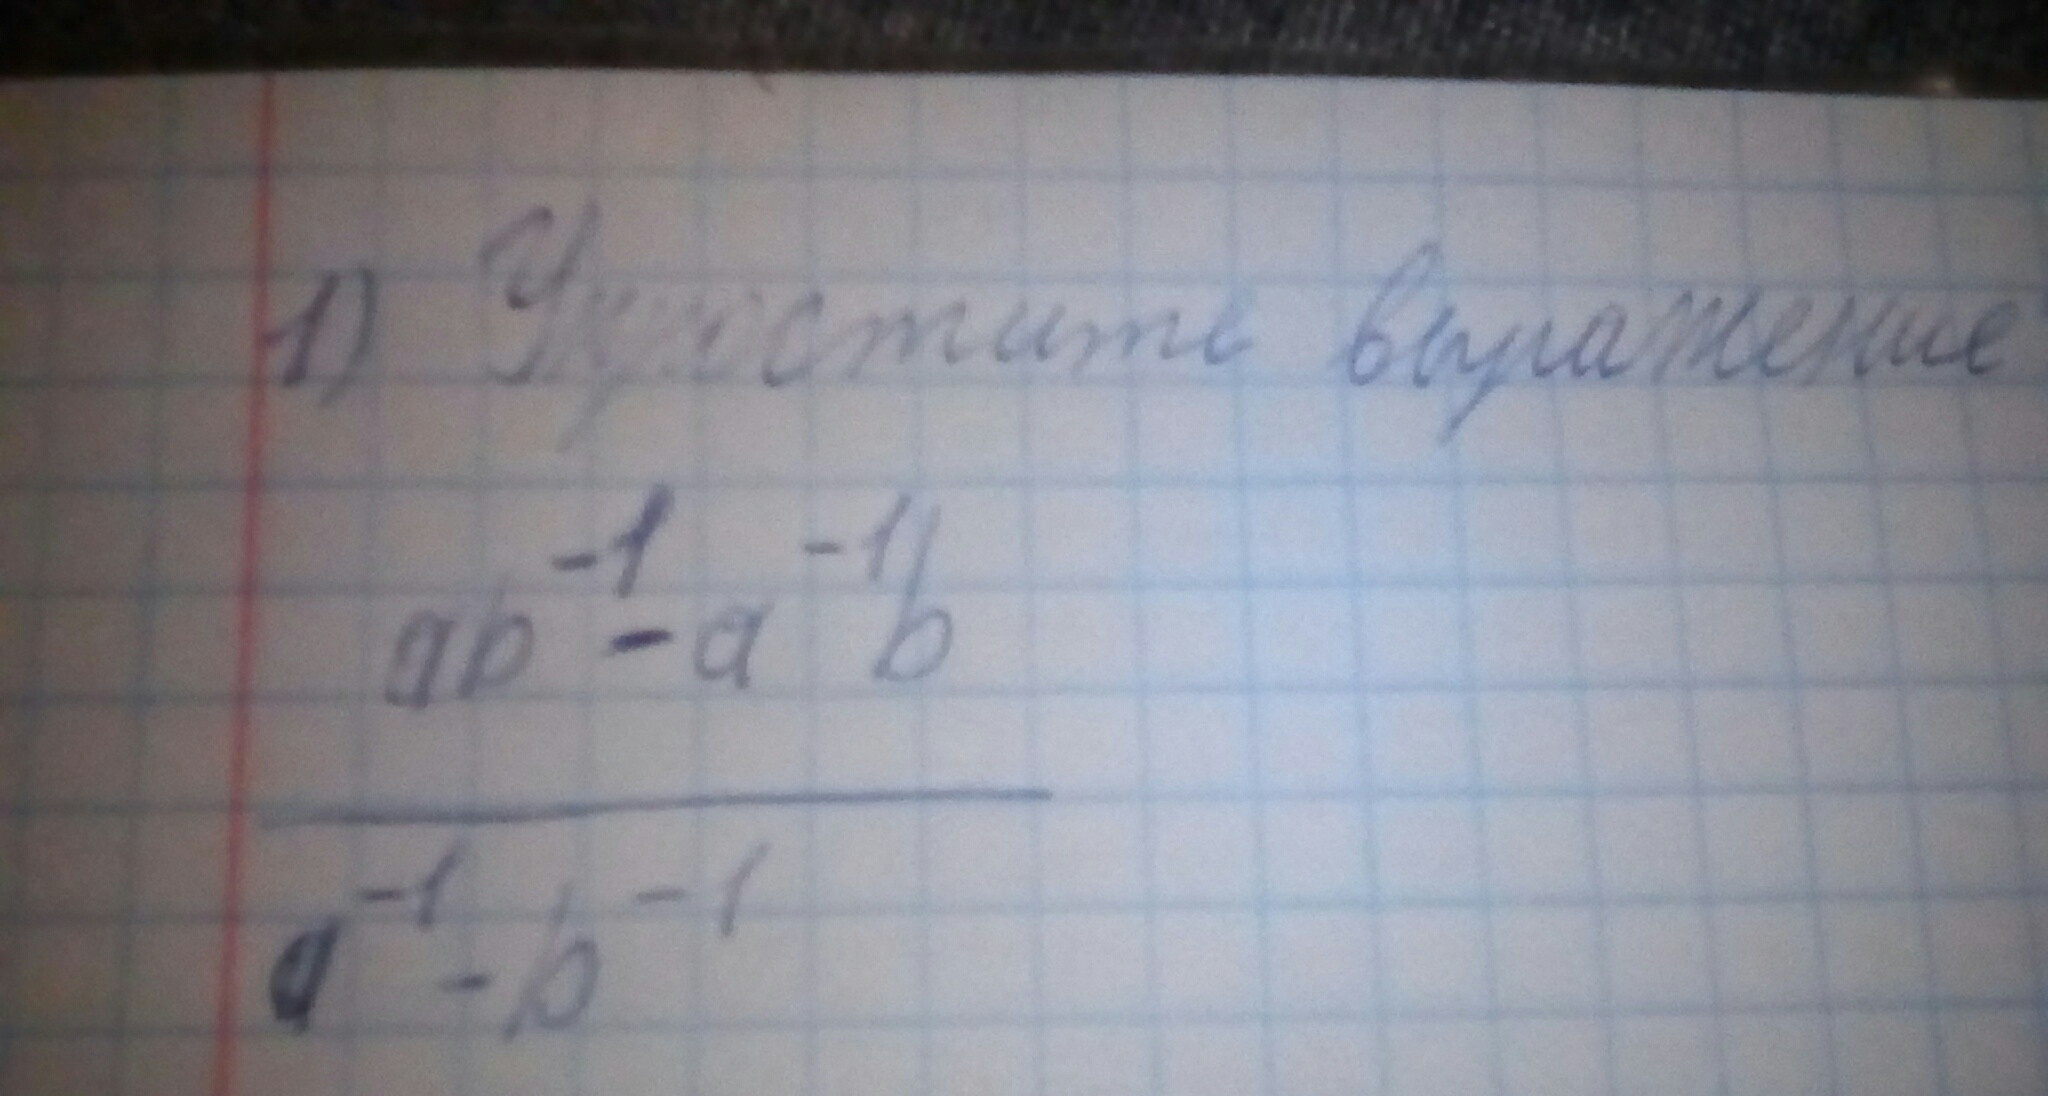 1) Упростите выражение
ab⁻¹ - a⁻¹b
a⁻¹ - b⁻¹